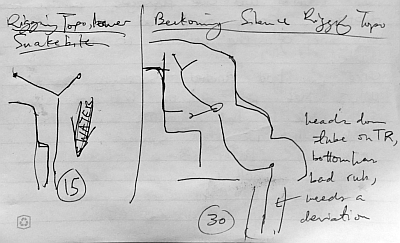 Rigging Topo, lower
Snakebite
WATER
15
Beckoning Silence Rigging Topo
heads down
tube on TR,
bottom has
bad rub,
needs a
deviation
30